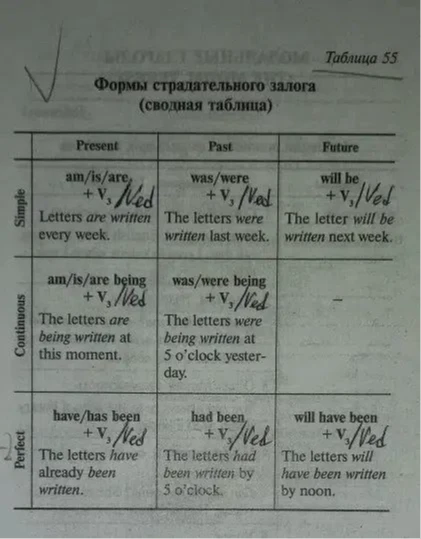 Таблица 55
Формы страдательного залога
(сводная таблица)
Present
Past
Future
Simple
am/is/are
+ V₃ /Ved
Letters are written
every week.
was/were
+ V₃ /Ved
The letters were
written last week.
will be
+ V₃ /Ved
The letter will be
written next week.
Continuous
am/is/are being
+ V₃ /Ved
The letters are
being written at
this moment.
was/were being
+ V₃ /Ved
The letters were
being written at
5 o'clock yester-
day.
–
Perfect
have/has been
+ V₃ /Ved
The letters have
already been
written.
had been
+ V₃ /Ved
The letters had
been written by
5 o'clock.
will have been
+ V₃ /Ved
The letters will
have been written
by noon.